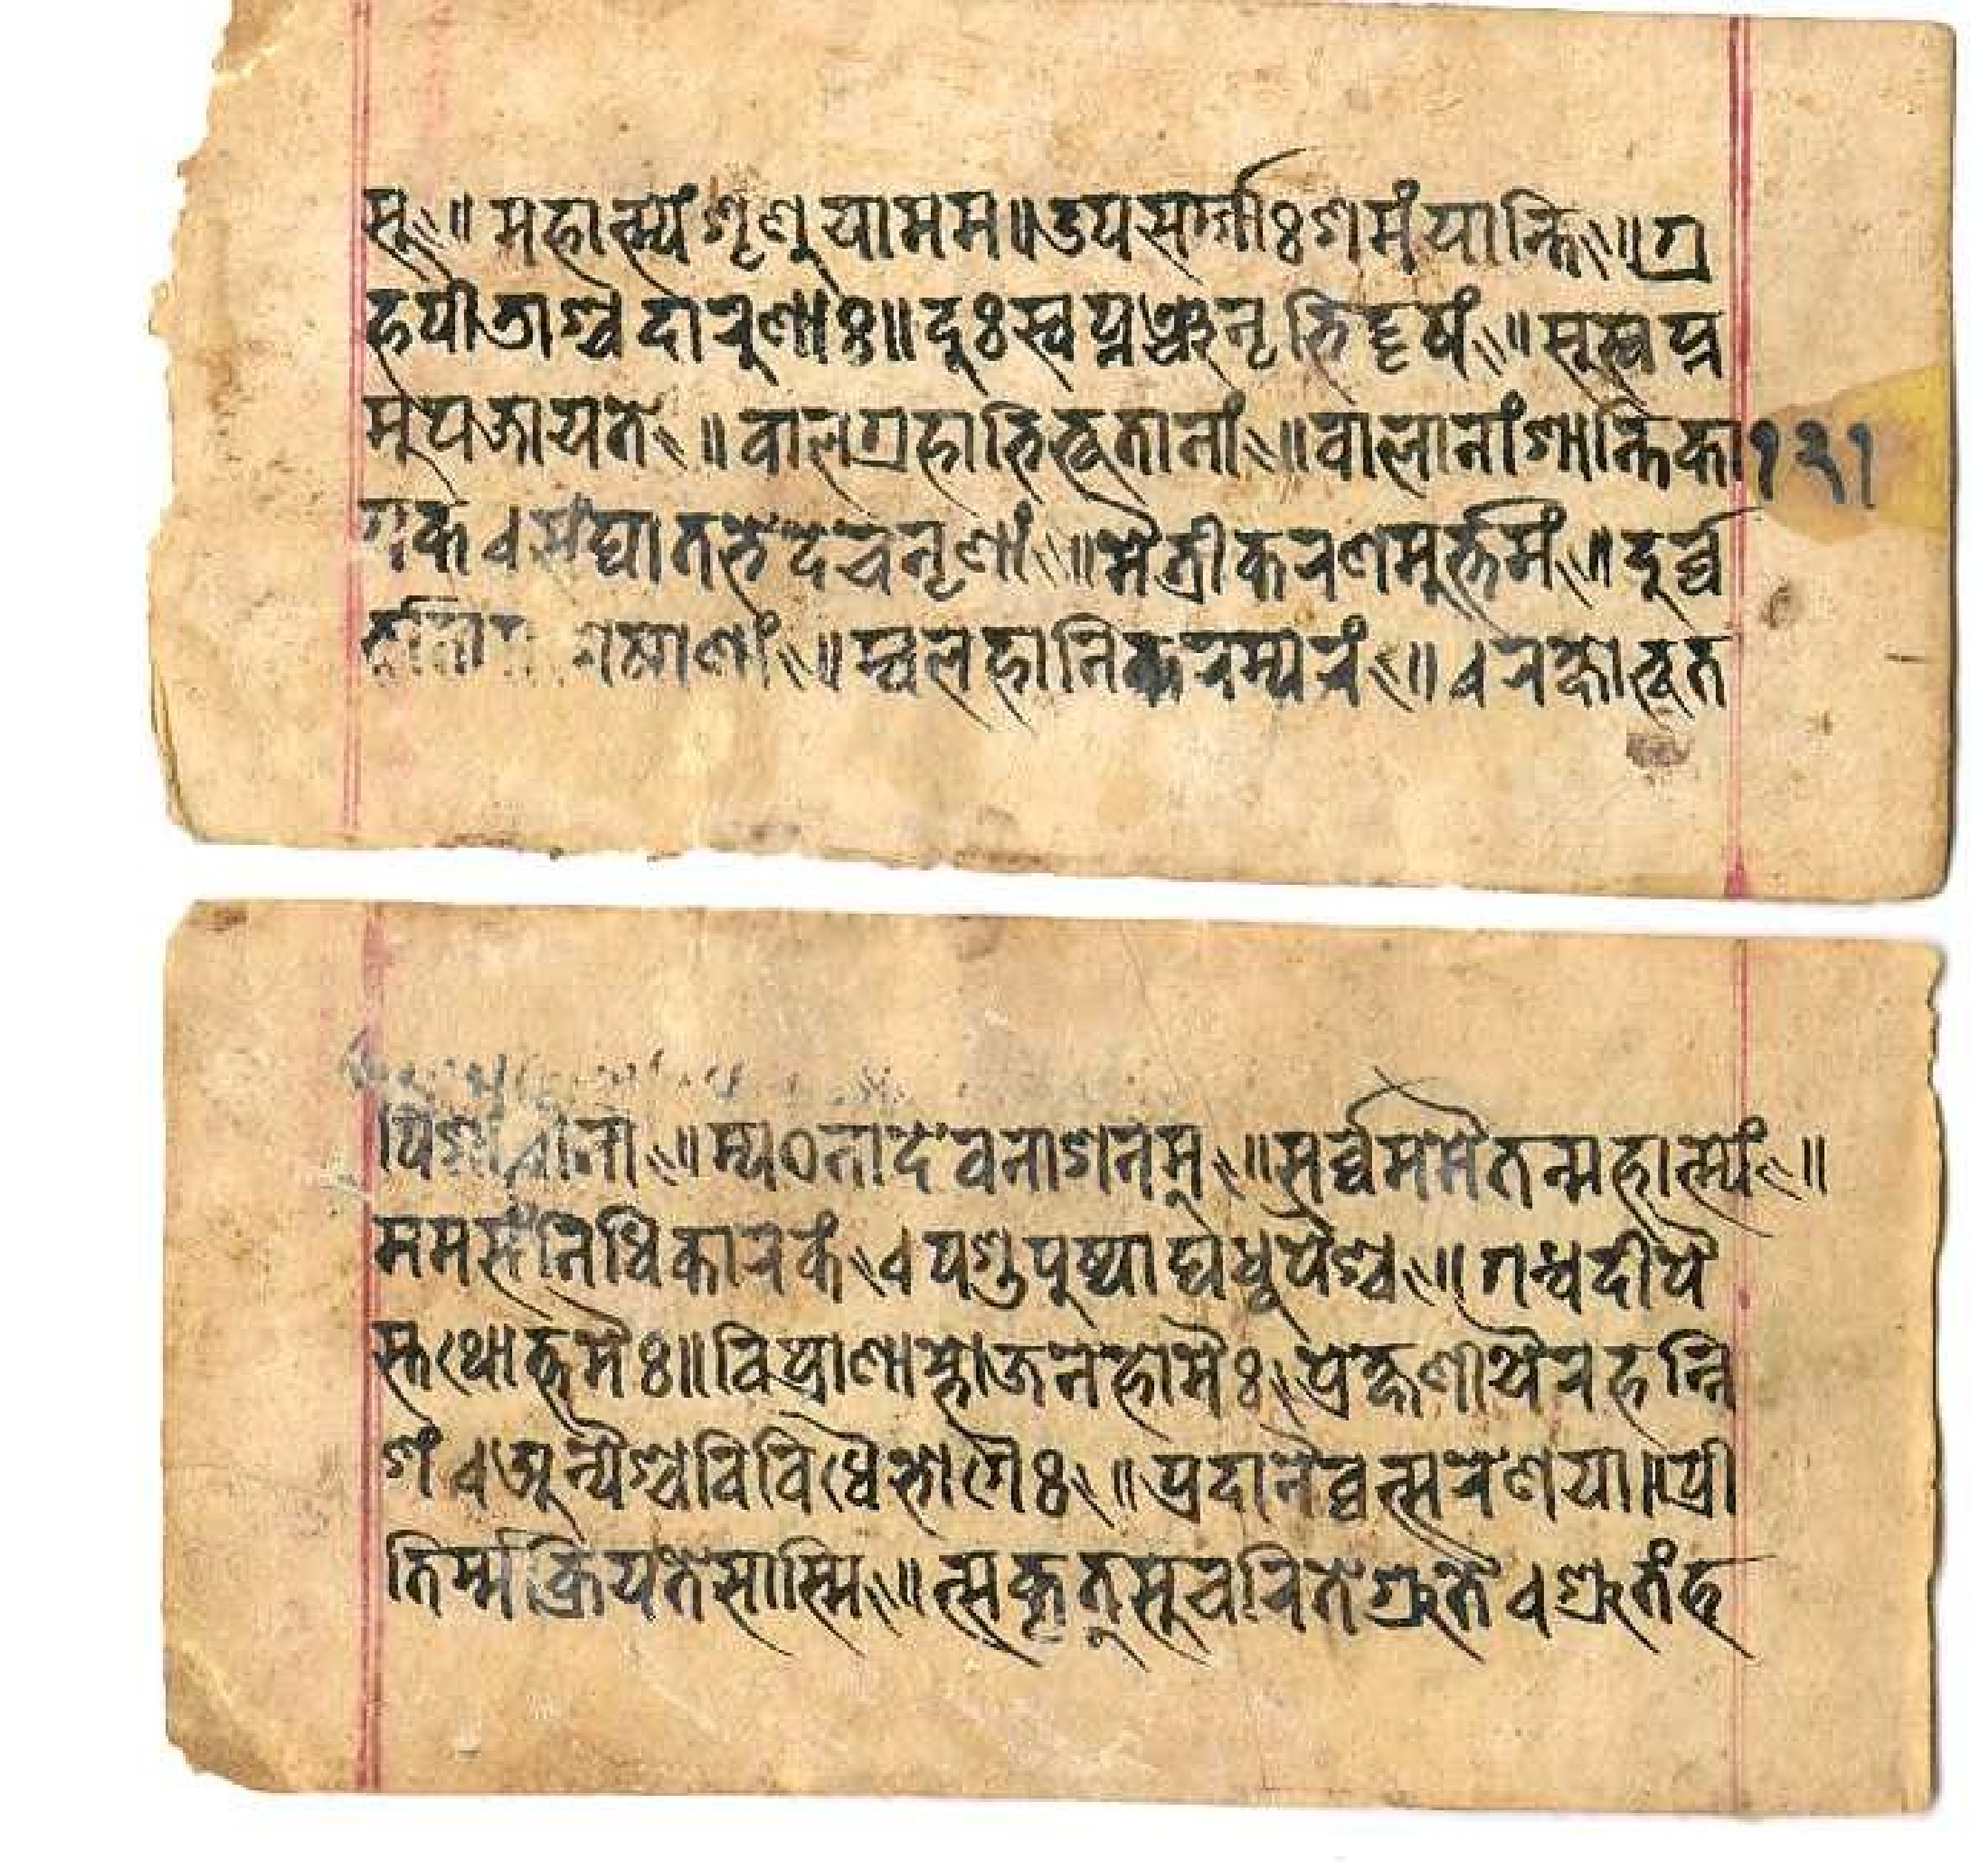 सु॥ महात्म्यं शृणुयामम॥ उपसर्ग्गाः शमं यान्ति॥ ग्र
हपीडाश्च दारुणाः॥ दुःस्वप्नञ्च नृभि दृष्टं॥ सुस्वप्न
मुपजायते॥ बालग्रहाभिभूतानां॥ बालानां शान्तिका १२१
संघातभेदे च नृणां॥ मैत्रीकरणमुत्तमं॥ दुर्व्वृ
म्बलहानिकरम्परं॥ रक्षोभूत
पिशाचानां॥ म्पठनादेवनाशनम्॥ सर्व्वममैतन्महात्म्यं॥
ममसंनिधिकारकं पशुपुष्पार्घधुपैश्च॥ गन्धदीपै
स्तथोत्तमैः॥ विप्राणाम्भोजनहोमैः प्रोक्षणीयैरहन्नि
शं अन्यैश्च विविधैर्भोगैः॥ प्रदानैर्व्वत्सरेणया॥ प्री
तिर्म्मेक्रियतेसास्मि॥ त्सकृत्सुचरिते श्रुते श्रुतंह